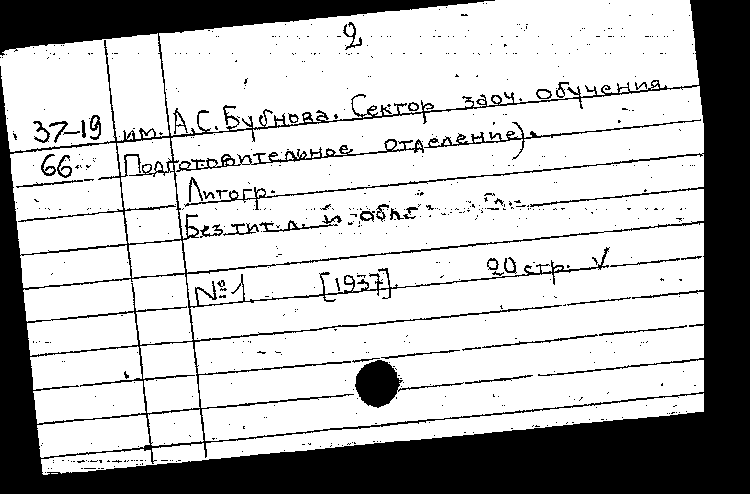 2
37-19 им. А.С. Бубнова. Сектор заоч. обучения.
66 Подготовительное отделение).
Литогр.
Без тит. л. и обл.
№1 [1937]. 20 стр. V